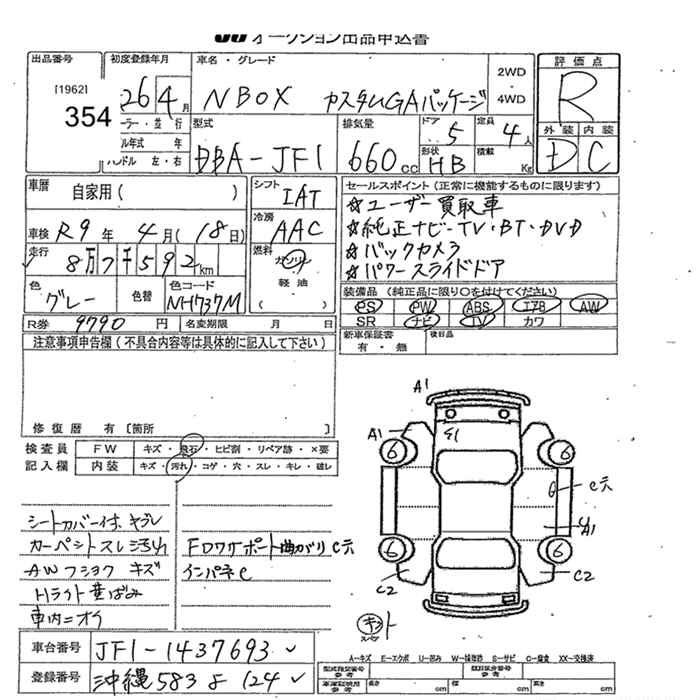 JU オークション出品申込書
出品番号
[1962]
354
初度登録年月
26 4月
車名・グレード
N BOX カスタムGAパッケージ
2WD
4WD
評価点
R
外装 内装
D C
型式
DBA-JF1
排気量
660cc
ドア
5
形状
HB
定員
4人
積載
Kg
ハンドル 左・右
車歴
自家用( )
車検 R9年 4月(18日)
走行 8万7千592km
色
グレー
色替
色コード
NH737M
シフト
IAT
冷房
AAC
燃料
ガソリン
軽油
( )
R券 9790円
名変期限 月 日
セールスポイント(正常に機能するものに限ります)
☆ユーザー買取車
☆純正ナビ-TV・BT・DVD
☆バックカメラ
☆パワースライドドア
装備品 (純正品に限り○を付けてください)
PS PW ABS エアB AW
SR ナビ TV カワ
新車保証書 有・無
後日品
注意事項申告欄(不具合内容等は具体的に記入して下さい)
修復歴 有[箇所 ]
検査員 記入欄
FW キズ・飛石・ヒビ割・リペア跡・×要
内装 キズ・汚れ・コゲ・穴・スレ・キレ・破レ
シートカバー付、ヤブレ
カーペットスレ汚れ
AWフショク キズ
Hライト黄ばみ
車内ニオイ
FロワサポートBガリ C穴
インパネC
A1
A1
61
6
6
6
6
C穴
A1
C2
C2
キット
車台番号 JF1-1437693
登録番号 沖縄 583 よ 124
A-キズ E-エクボ U-凹み W-補修跡 S-サビ C-腐食 XX-交換済
型式指定番号 参考
類別区分番号 参考
車庫証明用 参考
長さ cm
幅 cm
高さ cm